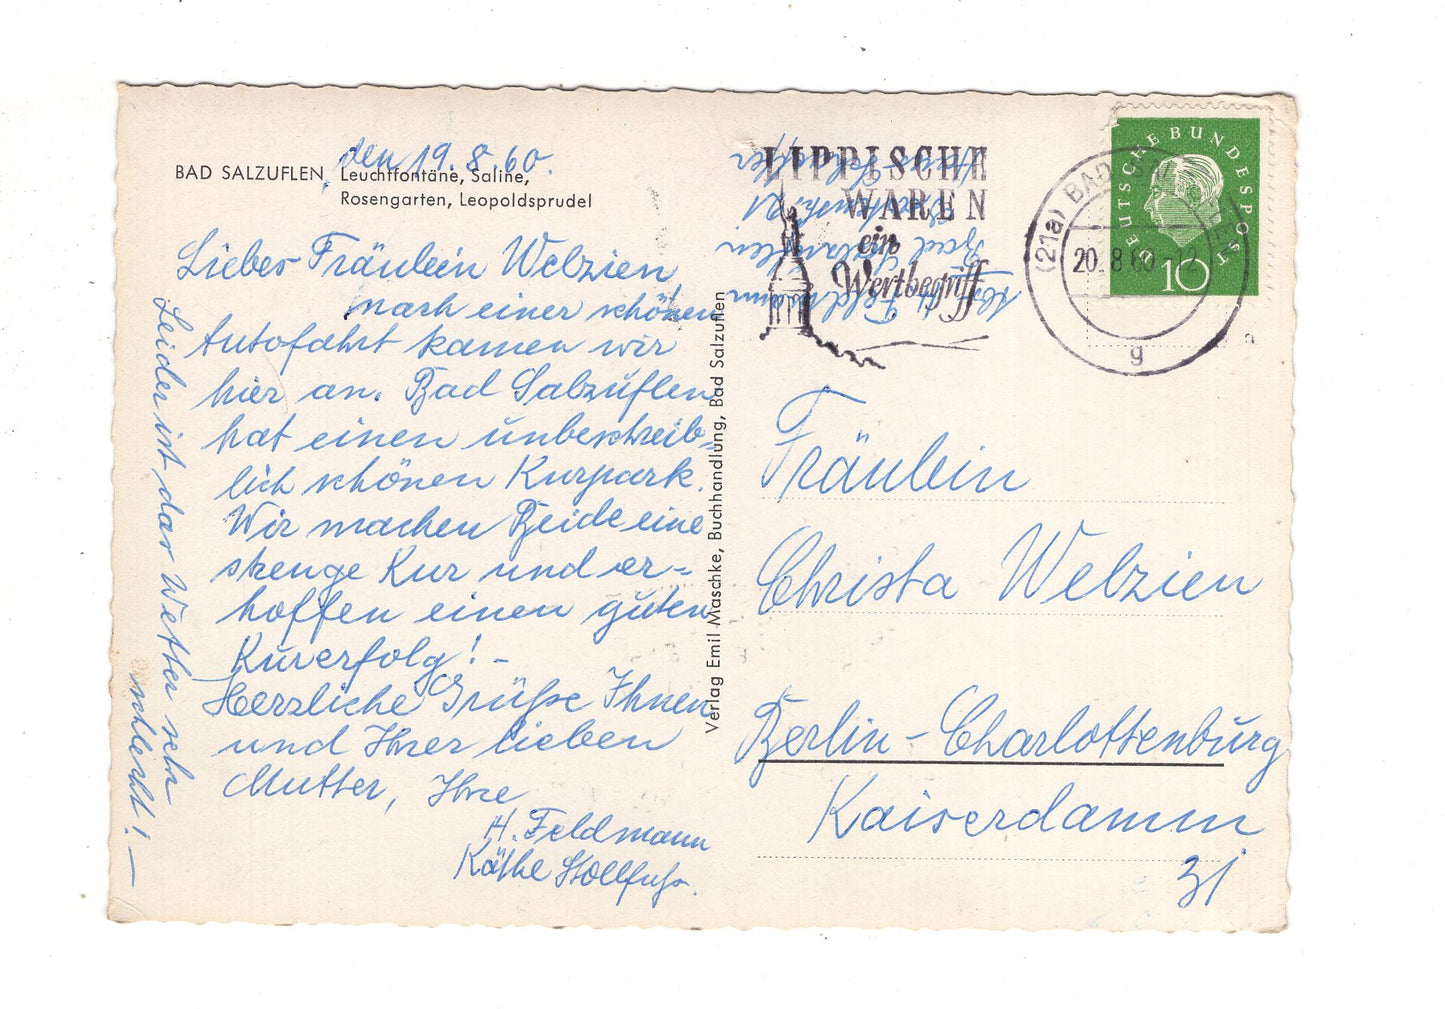 BAD SALZUFLEN, Leuchtfontäne, Saline,
Rosengarten, Leopoldsprudel
den 19.8.60.
Liebes Fräulein Welzien
nach einer schönen
Autofahrt kamen wir
hier an. Bad Salzuflen
hat einen unbeschreib=
lich schönen Kurpark.
Wir machen Beide eine
strenge Kur und er=
hoffen einen guten
Kurerfolg! –
Herzliche Grüße Ihnen
und Ihrer lieben
Mutter, Ihre
H. Feldmann
Käthe Stollfuß.
Leider ist das Wetter sehr
schlecht! –
Verlag Emil Maschke, Buchhandlung, Bad Salzuflen
Abs. H. Feldmann
Bad Salzuflen
21
LIPPISCHE
WAREN
ein
Wertbegriff
(21a) BAD SALZUFLEN
20.8.60
g
DEUTSCHE BUNDESPOST
10
Fräulein
Christa Welzien
Berlin-Charlottenburg
Kaiserdamm
31